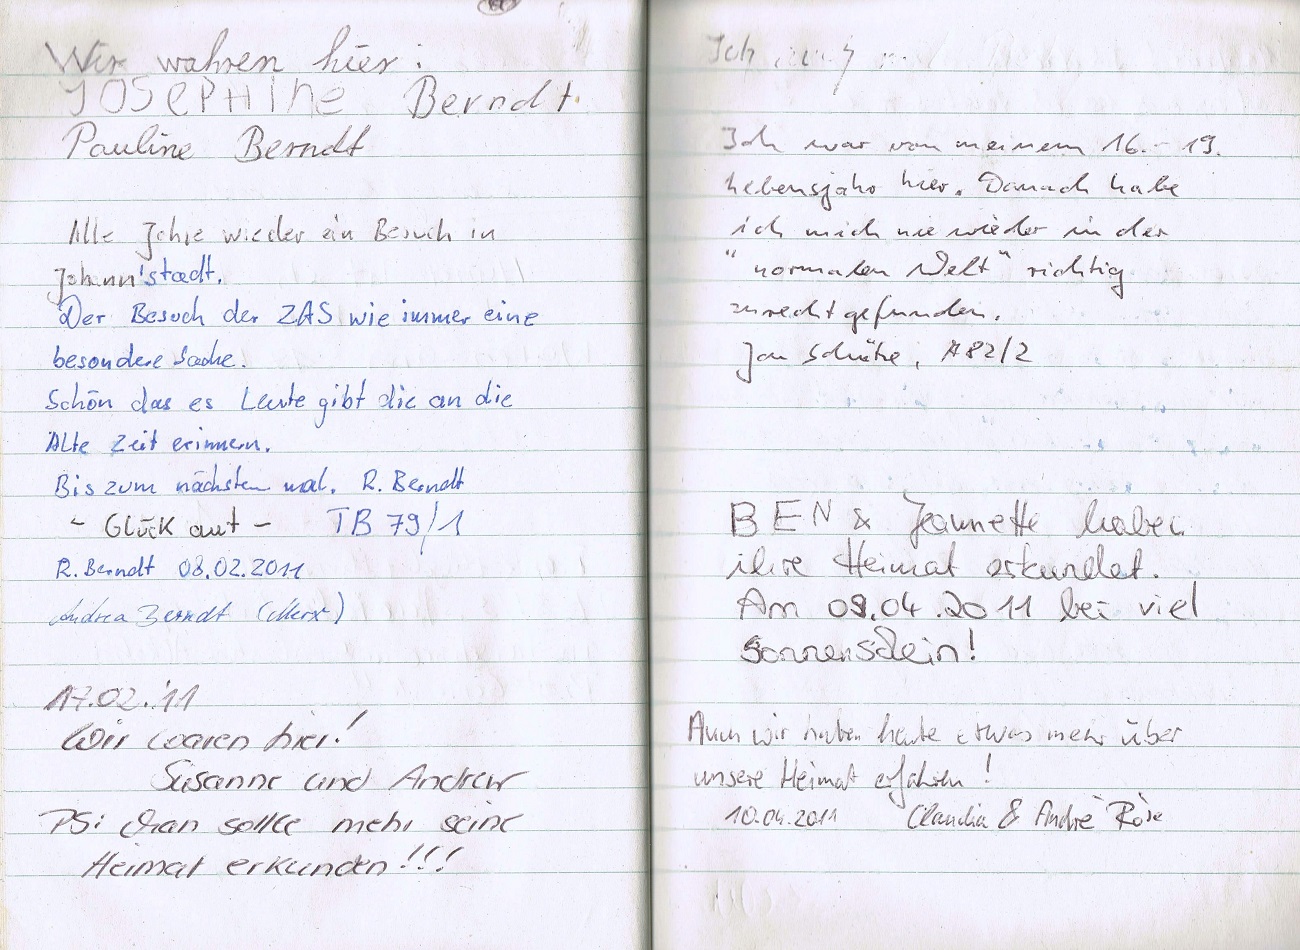 Wir wahren hier:
JOSEPHINE Berndt
Pauline Berndt
Alle Jahre wieder ein Besuch in
Johann'stadt.
Der Besuch der ZAS wie immer eine
besondere Sache.
Schön das es Leute gibt die an die
Alte Zeit erinnern.
Bis zum nächsten mal. R. Berndt
- Glück auf - TB 79/1
R. Berndt 08.02.2011
Andrea Berndt (Merx)
17.02.'11
Wir waren hier!
Susanne und Andrew
PS: Man sollte mehr seine
Heimat erkunden!!!
Ich
Ich war von meinem 16. - 19.
Lebensjahr hier. Danach habe
ich mich nie wieder in der
"normalen Welt" richtig
zurecht gefunden.
Jan Schütze, A82/2
BEN & Jeannette haben
ihre Heimat erkundet.
Am 09.04.2011 bei viel
Sonnenschein!
Auch wir haben heute etwas mehr über
unsere Heimat erfahren!
10.04.2011 Claudia & André